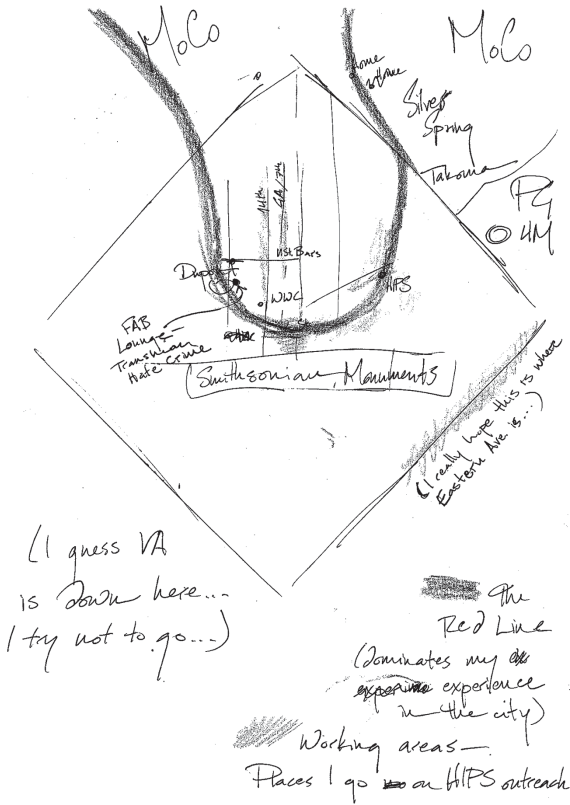 MoCo
MoCo
Home
Silver
Spring
Takoma
PG
4M
14th
GA/7th
U St Bars
Dupont
WWC
HIPS
FAB
Lounge-
Transwoman
Hate crime
Smithsonian, Monuments
(I really hope this is where
Eastern Ave. is...)
(I guess VA
is down here...
I try not to go...)
The
Red Line
(dominates my
experience
in the city)
Working areas-
Places I go on HIPS outreach